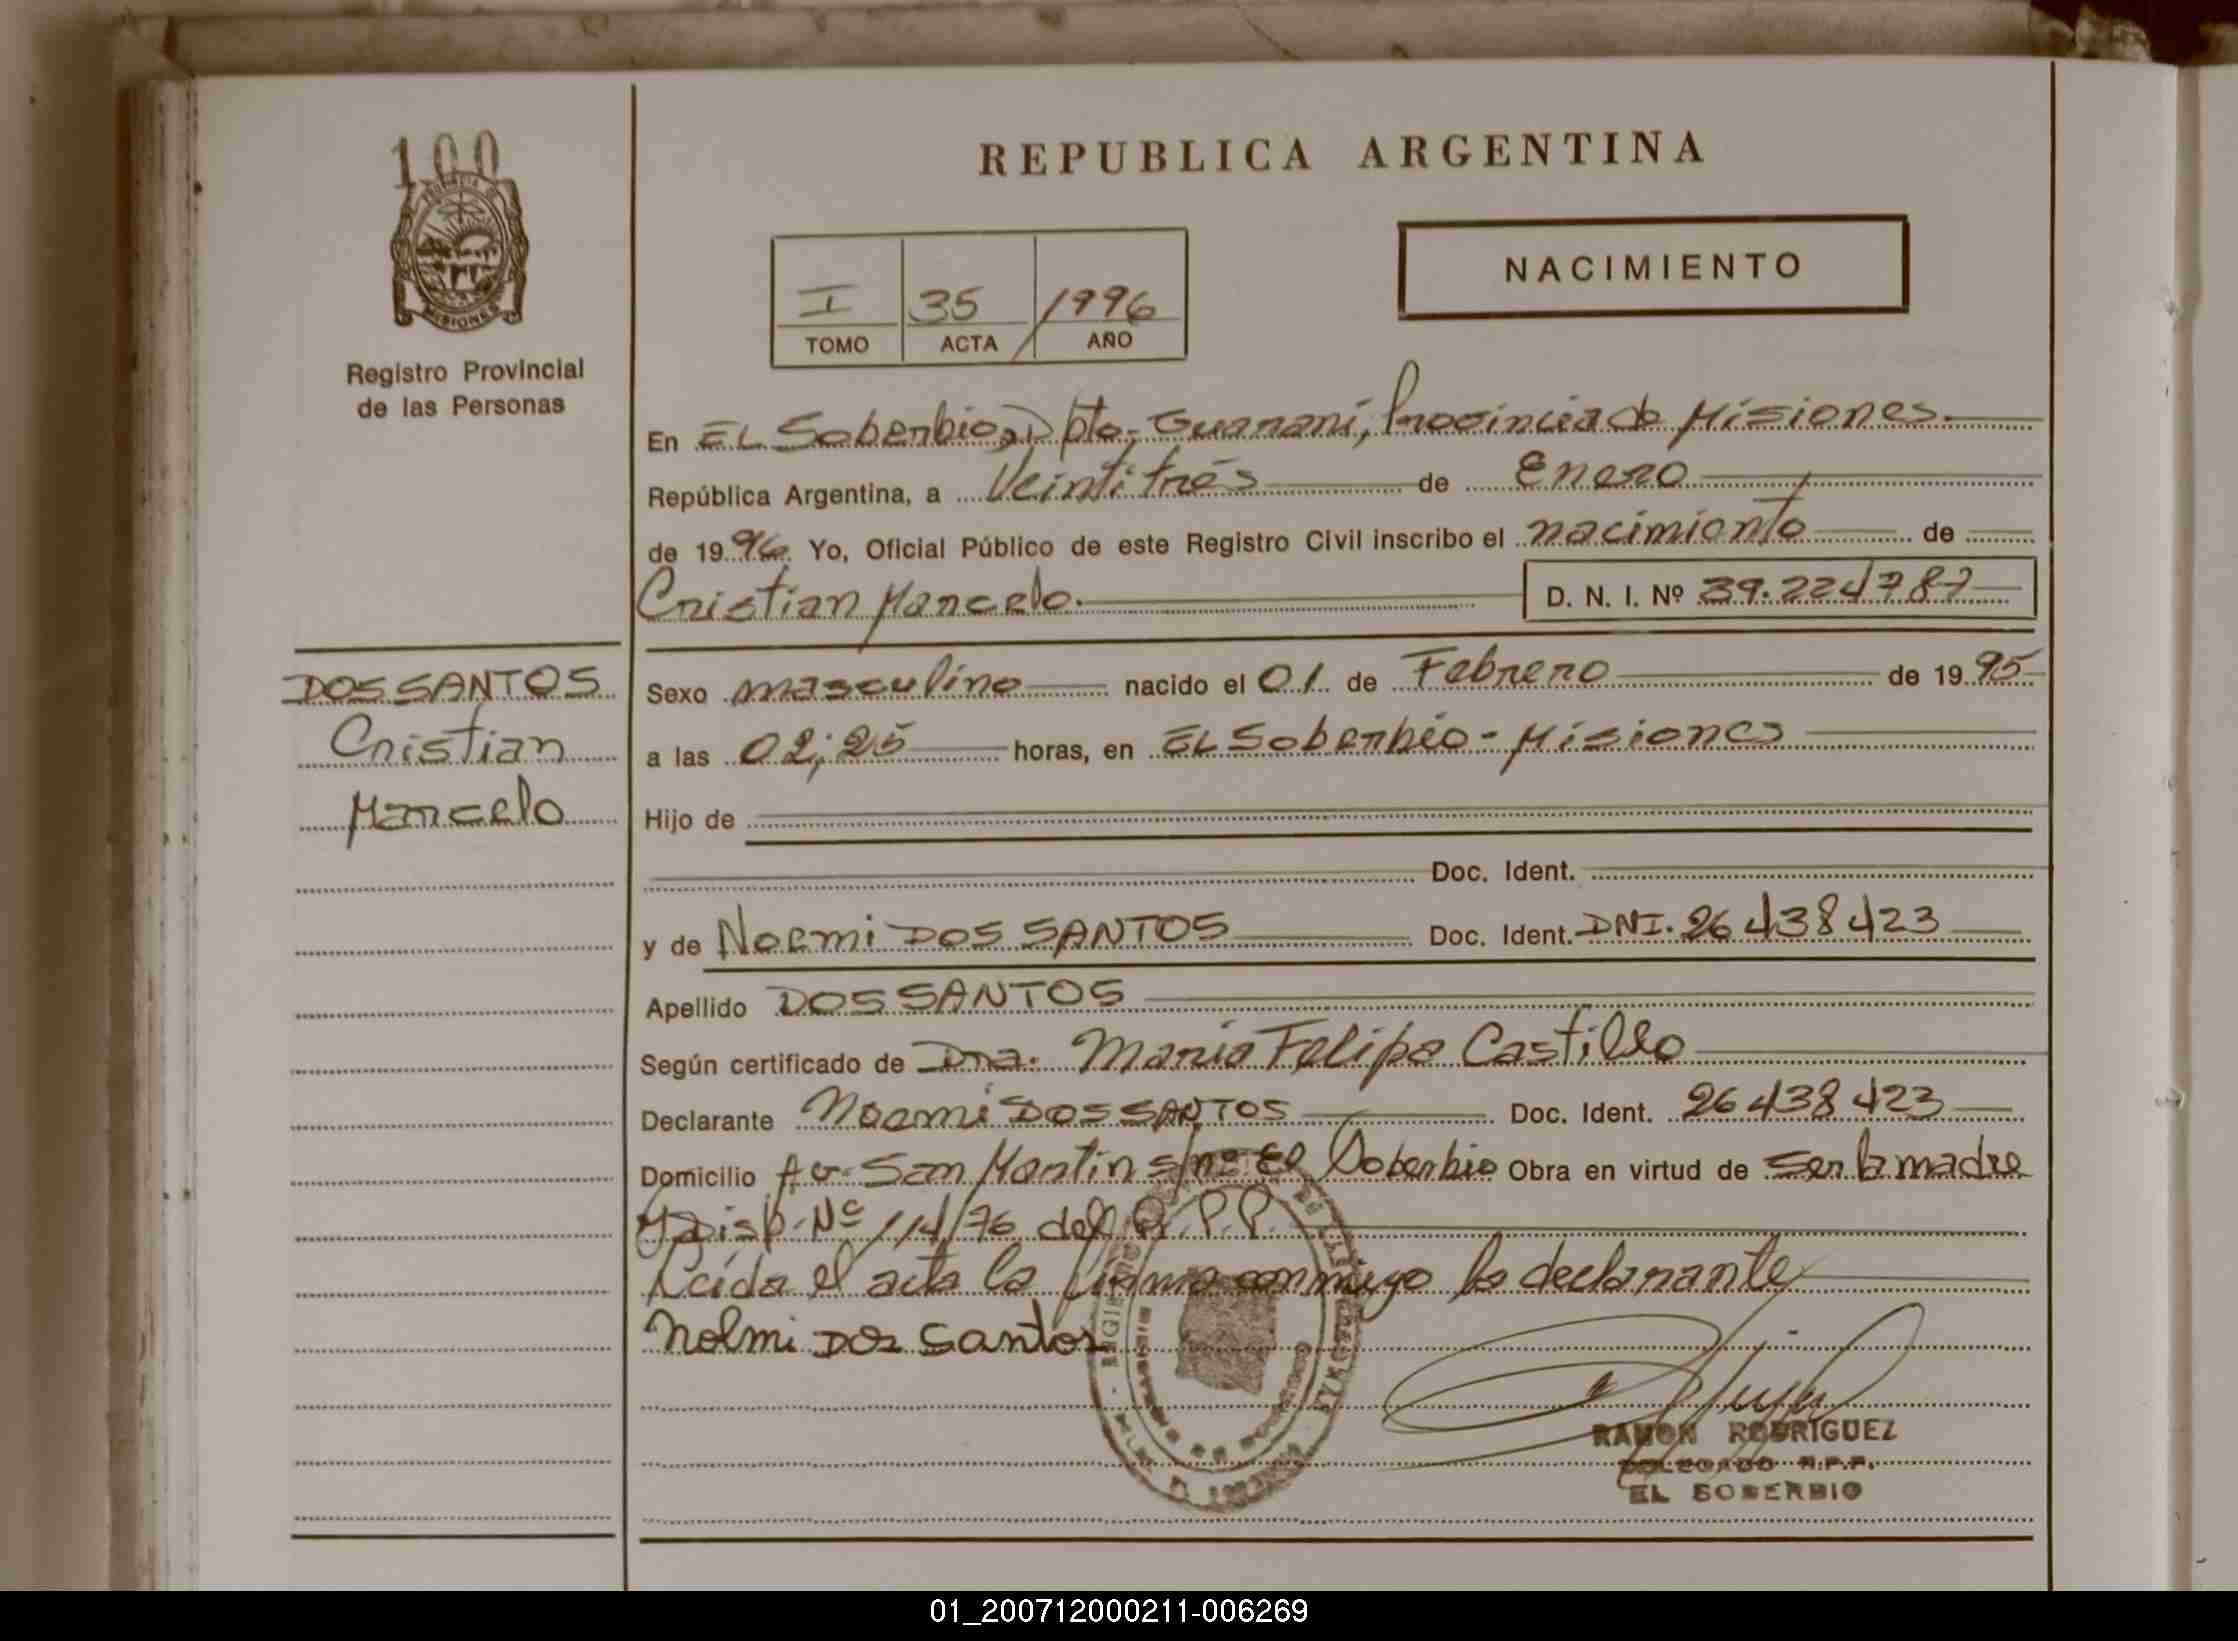 100
PROVINCIA DE
MISIONES
Registro Provincial
de las Personas
DOS SANTOS
Cristian
Marcelo
REPUBLICA ARGENTINA
I 35 /1996
TOMO ACTA AÑO
NACIMIENTO
En EL Soberbio, Dpto. Guaraní, Provincia de Misiones.
República Argentina, a Veintitrés de Enero
de 1996. Yo, Oficial Público de este Registro Civil inscribo el nacimiento de
Cristian Marcelo. D. N. I. Nº 39.224787
Sexo masculino nacido el 01 de Febrero de 1995
a las 02;25 horas, en EL Soberbio - Misiones
Hijo de
Doc. Ident.
y de Noemi DOS SANTOS Doc. Ident. DNI. 26438423
Apellido DOS SANTOS
Según certificado de Dra. Maria Felipa Castillo
Declarante Noemi DOS SANTOS Doc. Ident. 26438423
Domicilio Av. San Martin s/nº El Soberbio Obra en virtud de ser la madre
Disp. Nº 114/76 del R.P.P.
Leída el acta la firma conmigo la declarante
Nolmi DOS Santos
RAMON RODRIGUEZ
DELEGADO R.P.P.
EL SOBERBIO
01_200712000211-006269